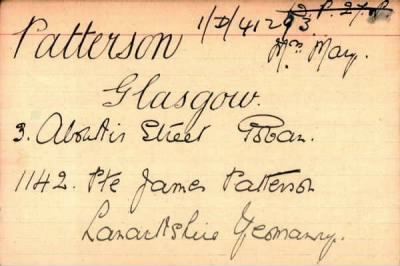 Patterson 1/D/41293.
Mrs. Mary.
Glasgow.
3. Street Govan.
1142. Pte James Patterson
Lanarkshire Yeomanry.